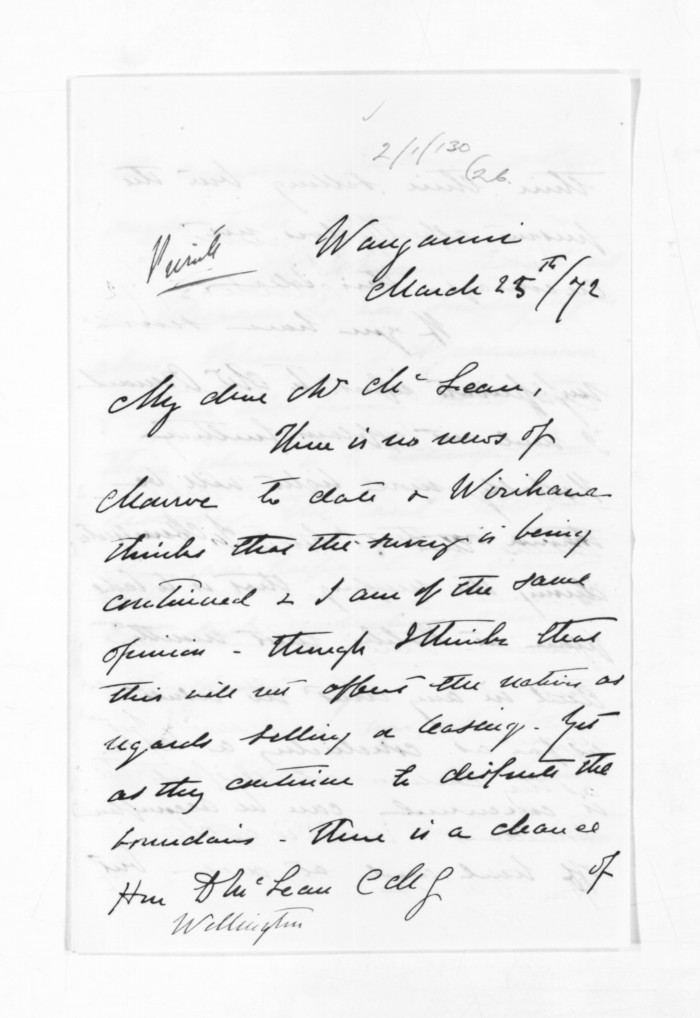 2/1/130
(26.
Private
Wanganui
March 25th/72
My dear Mr McLean,
There is no news of
to date & Wirihana
thinks that the survey is being
continued & I am of the same
opinion - though I think that
this will not affect the natives as
regards selling or leasing. Yet
as they continue to dispute the
boundaries - there is a chance
of
Hon D McLean CMG
Wellington